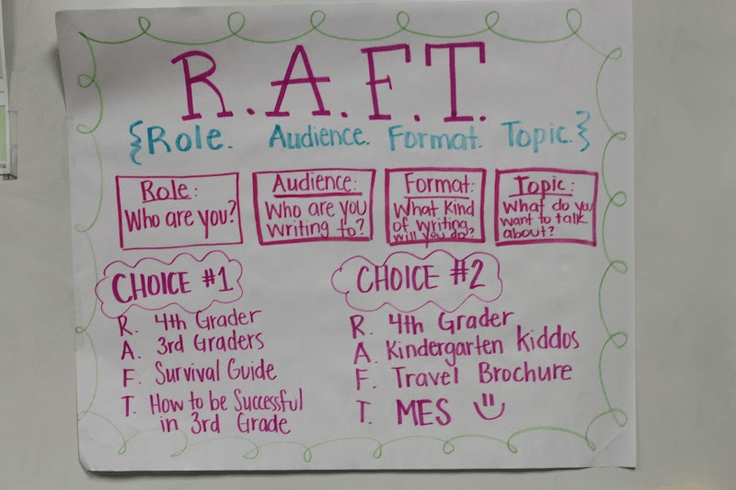 R.A.F.T.
{Role. Audience. Format. Topic.}
Role:
Who are you?
Audience:
Who are you
writing to?
Format:
What kind
of writing
will you do?
Topic:
What do you
want to talk
about?
CHOICE #1
R. 4th Grader
A. 3rd Graders
F. Survival Guide
T. How to be Successful
in 3rd Grade
CHOICE #2
R. 4th Grader
A. Kindergarten Kiddos
F. Travel Brochure
T. MES